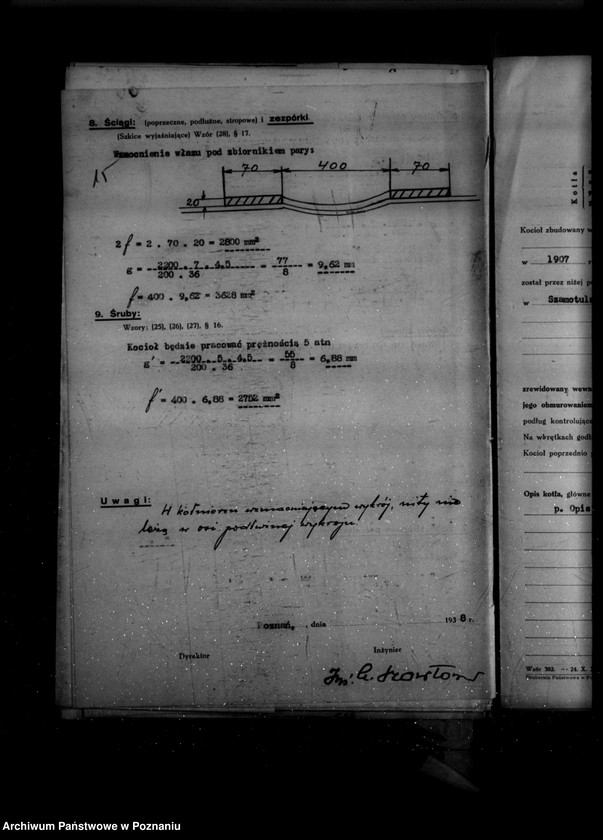 8. Ściągi: (poprzeczne, podłużne, stropowe) i zezpórki.
(Szkice wyjaśniające) Wzór (28), § 17.
Wzmocnienie włazu pod zbiornikiem pary:
15
70 400 70
20
2 f = 2 . 70 . 20 = 2800 mm²
g = 2200 . 7 . 4,5 / 200 . 36 = 77 / 8 = 9,62 mm
f = 400 . 9,62 = 3628 mm²
9. Śruby:
Wzory: (25), (26), (27), § 16.
Kocioł będzie pracować prężnością 5 atn
g' = 2200 . 5 . 4,5 / 200 . 36 = 55 / 8 = 6,88 mm
f' = 400 . 6,88 = 2752 mm²
Uwagi: W kołnierzu wzmacniającym wykrój, nity nie
leżą w osi podłużnej wykroju.
Poznań, dnia 1938 r.
Dyrektor
Inżynier
Inż. G.
Kotła
Kocioł zbudowany w
w 1907 r
został przez niżej p
w Szamotuł
zrewidowany wewn
jego obmurowaniem
podług kontrolując
Na wkrętkach godł
Kocioł poprzednio
Opis kotła, główne
p. Opis
Wzór 302. — 24. X.
Drukarnia Państwowa w P
Archiwum Państwowe w Poznaniu